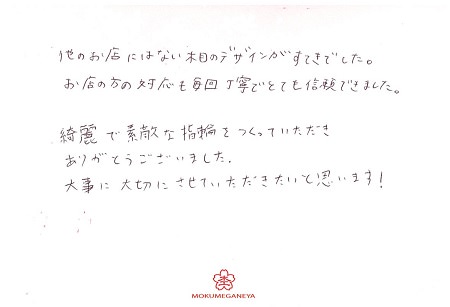 他のお店にはない木目のデザインがすてきでした。
お店の方の対応も毎回丁寧でとても信頼できました。
綺麗で素敵な指輪をつくっていただき
ありがとうございました.
大事に大切にさせていただきたいと思います!
MOKUMEGANEYA